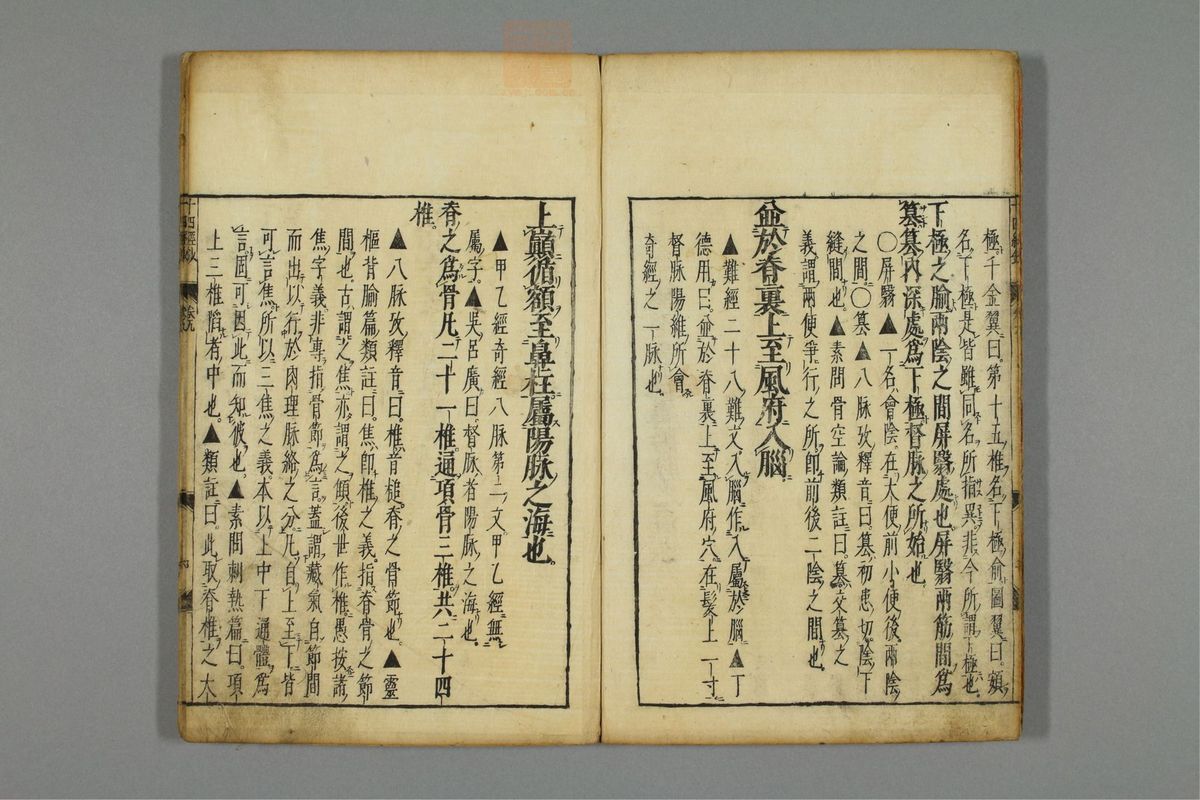 極千金翼曰第十五椎名下極俞圖翼曰額
名下極是皆雖同名所指異非今所謂下極也
下極之腧兩陰之間屏翳處也屏翳兩筋間爲
篡篡內深處爲下極督脉之所始也
〇屏翳▲一名會陰在大便前小便後兩陰
之間〇篡▲八脉攷釋音曰篡初患切陰下
縫間也▲素問骨空論類註曰篡交篡之
義謂兩便爭行之所卽前後二陰之間也
並於脊裏上至風府入腦
▲難經二十八難文入腦作入屬於腦▲丁
德用曰並於脊裏上至風府穴在髮上一寸
督脉陽維所會
奇經之一脉也
上巔循額至鼻柱屬陽脉之海也
▲甲乙經奇經八脉第二文甲乙經無
屬字▲吳呂廣曰督脉者陽脉之海也
脊之爲骨凡二十一椎通項骨三椎共二十四
椎
▲八脉攷釋音曰椎音槌脊之骨節也▲靈
樞背腧篇類註曰焦卽椎之義指脊骨之節
間也古謂之焦亦謂之傾後世作椎愚按諸
焦字義非專指骨節爲言蓋謂藏氣自節間
而出以行於肉理脉絡之分凡自上至下皆
可言焦所以三焦之義本以上中下通體爲
言固可因此而知彼也▲素問刺熱篇曰項
上三椎陷者中也▲類註曰此取脊椎之大
十四經
卷九
六